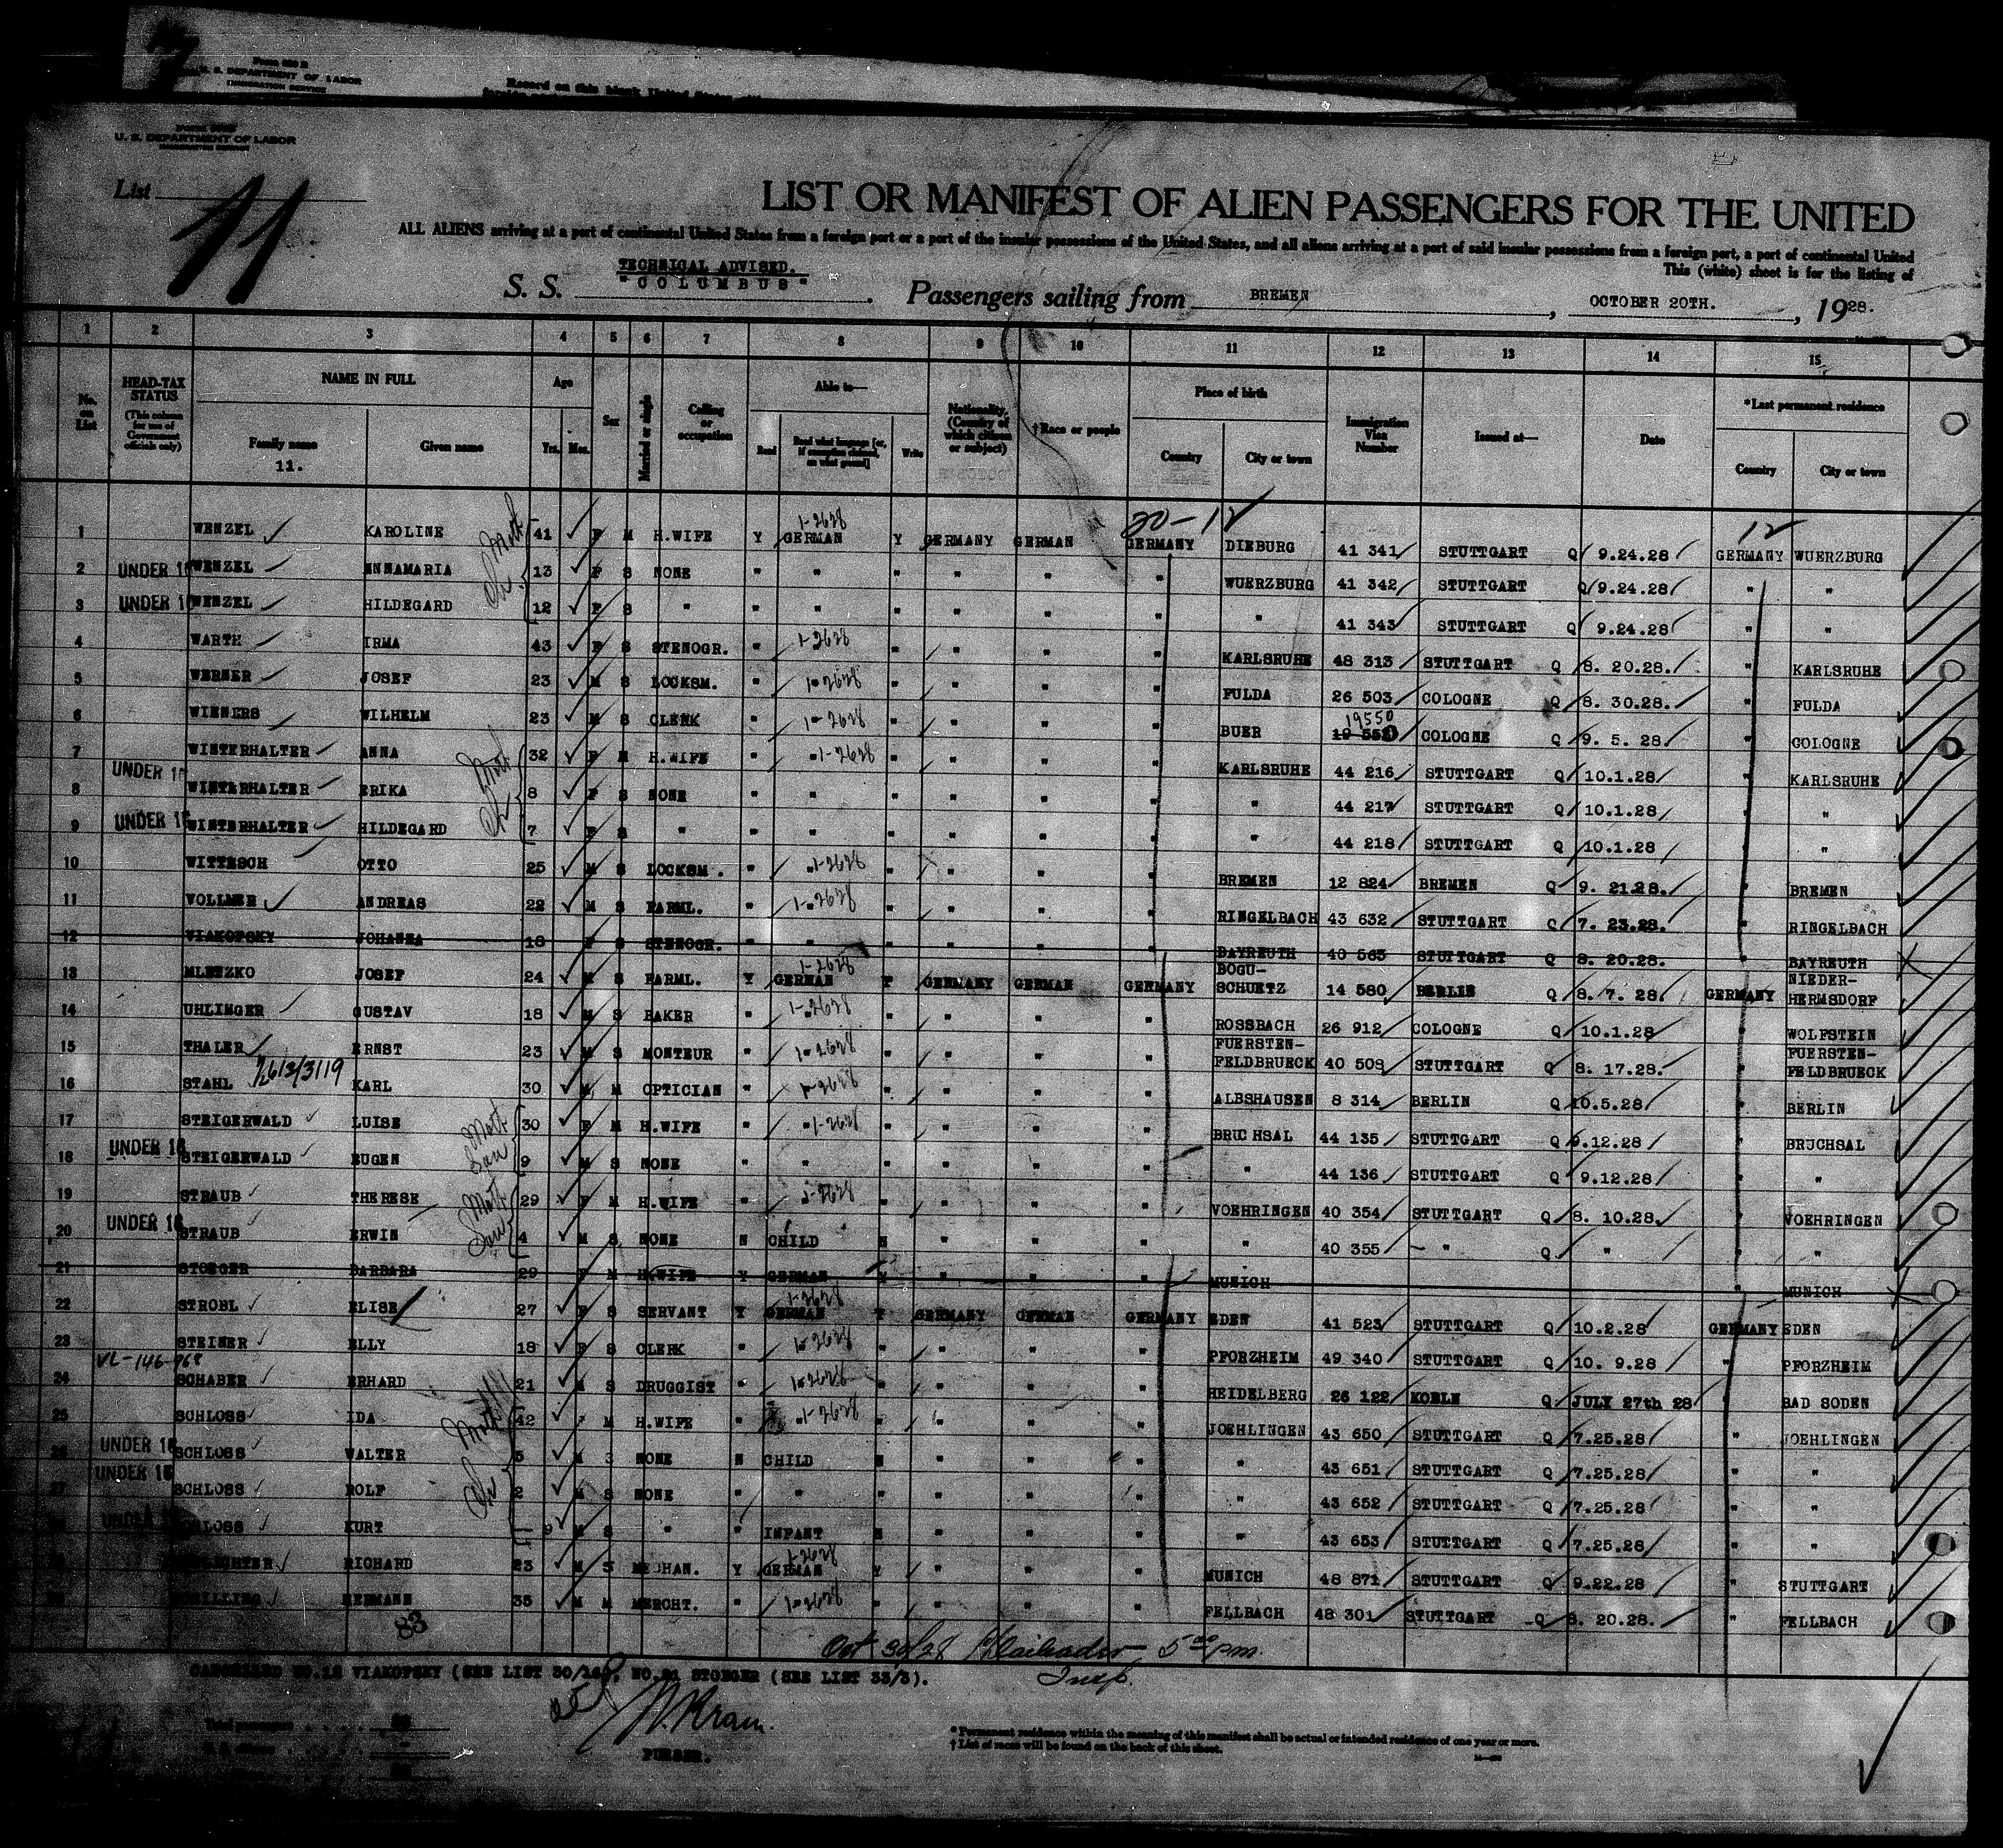 U. S. DEPARTMENT OF LABOR
IMMIGRATION SERVICE
Record on this blank United States
U. S. DEPARTMENT OF LABOR
List 11
LIST OR MANIFEST OF ALIEN PASSENGERS FOR THE UNITED
ALL ALIENS arriving at a port of continental United States from a foreign port or a port of the insular possessions of the United States, and all aliens arriving at a port of said insular possessions from a foreign port, a port of continental United
This (white) sheet is for the listing of
TECHNICAL ADVISED.
S. S. "COLUMBUS". Passengers sailing from BREMEN, OCTOBER 20TH., 1928.
1 2 3 4 5 6 7 8 9 10 11 12 13 14 15
No. on List HEAD-TAX STATUS (This column for use of Government officials only) NAME IN FULL Family name 11. Given name Age Yrs. Mos. Sex Married or single Calling or occupation Able to— Read Read what language [or, if exemption claimed, on what ground] Write Nationality. (Country of which citizen or subject) †Race or people Place of birth Country City or town Immigration Visa Number Issued at— Date *Last permanent residence Country City or town
20-12 12
1 WENZEL KAROLINE 41 F M H.WIFE Y 1-2628 GERMAN Y GERMANY GERMAN GERMANY DIEBURG 41 341 STUTTGART Q 9.24.28 GERMANY WUERZBURG
2 UNDER 16 WENZEL ANNAMARIA 13 F S NONE " " " " " " WUERZBURG 41 342 STUTTGART Q 9.24.28 " "
3 UNDER 16 WENZEL HILDEGARD 12 F S " " " " " " " " 41 343 STUTTGART Q 9.24.28 " "
4 WARTH IRMA 43 F S STENOGR. " 1-2628 " " " " KARLSRUHE 48 313 STUTTGART Q 8. 20.28. " KARLSRUHE
5 WERNER JOSEF 23 M S LOCKSM. " 1-2628 " " " " FULDA 26 503 COLOGNE Q 8. 30.28. " FULDA
6 WIENERS WILHELM 23 M S CLERK " 1-2628 " " " " BUER 19550 COLOGNE Q 9. 5. 28. " COLOGNE
7 WINTERHALTER ANNA 32 F M H.WIFE " 1-2628 " " " " KARLSRUHE 44 216 STUTTGART Q 10.1.28 " KARLSRUHE
8 UNDER 16 WINTERHALTER ERIKA 8 F S NONE " " " " " " " 44 217 STUTTGART Q 10.1.28 " "
9 UNDER 16 WINTERHALTER HILDEGARD 7 F S " " " " " " " " 44 218 STUTTGART Q 10.1.28 " "
10 WITTESCH OTTO 25 M S LOCKSM. " 1-2628 " " " " BREMEN 12 824 BREMEN Q 9. 21.28. " BREMEN
11 VOLLMER ANDREAS 22 M S FARML. " 1-2628 " " " " RINGELBACH 43 632 STUTTGART Q 7. 23.28. " RINGELBACH
12 VIAKOFSKY JOHANNA 18 F S STENOGR. " " " " " " BAYREUTH 40 565 STUTTGART Q 8. 20.28. " BAYREUTH
13 MLETZKO JOSEF 24 M S FARML. Y 1-2628 GERMAN Y GERMANY GERMAN GERMANY BOGU-SCHUETZ 14 580 BERLIN Q 8. 7. 28. GERMANY NIEDER-HERMSDORF
14 UHLINGER GUSTAV 18 M S BAKER " 1-2628 " " " " ROSSBACH 26 912 COLOGNE Q 10.1.28 " WOLFSTEIN
15 THALER ERNST 23 M S MONTEUR " 1-2628 " " " " FUERSTEN-FELDBRUECK 40 509 STUTTGART Q 8. 17.28. " FUERSTEN-FELDBRUECK
16 STAHL KARL 30 M M OPTICIAN " 1-2628 " " " " ALBSHAUSEN 8 314 BERLIN Q 10.5.28 " BERLIN
17 STEIGERWALD LUISE 30 F M H.WIFE " 1-2628 " " " " BRUCHSAL 44 135 STUTTGART Q 9.12.28 " BRUCHSAL
18 UNDER 16 STEIGERWALD EUGEN 9 M S NONE " " " " " " " 44 136 STUTTGART Q 9.12.28 " "
19 STRAUB THERESE 29 F M H.WIFE " 1-2628 " " " " VOEHRINGEN 40 354 STUTTGART Q 8. 10.28. " VOEHRINGEN
20 UNDER 16 STRAUB ERWIN 4 M S NONE N CHILD N " " " " 40 355 " Q " " "
21 STOEGER BARBARA 29 F M H.WIFE Y GERMAN Y " " " MUNICH " MUNICH
22 STROBL ELISE 27 F S SERVANT Y 1-2628 GERMAN Y GERMANY GERMAN GERMANY EDEN 41 523 STUTTGART Q 10.2.28 GERMANY EDEN
23 STEINER ELLY 18 F S CLERK " 1-2628 " " " " PFORZHEIM 49 340 STUTTGART Q 10. 9.28 " PFORZHEIM
24 SCHABER ERHARD 21 M S DRUGGIST " 1-2628 " " " " HEIDELBERG 26 122 KOELN Q JULY 27th 28 " BAD SODEN
25 SCHLOSS IDA 42 M H.WIFE " 1-2628 " " " " JOEHLINGEN 43 650 STUTTGART Q 7.25.28 " JOEHLINGEN
26 UNDER 16 SCHLOSS WALTER 5 M S NONE N CHILD N " " " " 43 651 STUTTGART Q 7.25.28 " "
27 UNDER 16 SCHLOSS ROLF 2 M S NONE " " " " " " " 43 652 STUTTGART Q 7.25.28 " "
SCHLOSS KURT 9 M S " " INFANT N " " " " 43 653 STUTTGART Q 7.25.28 " "
RICHARD 23 M S MECHAN. Y 1-2628 GERMAN Y " " " MUNICH 48 871 STUTTGART Q 9.22.28 " STUTTGART
HERMANN 35 M M MERCHT. " 1-2628 " " " " FELLBACH 48 301 STUTTGART Q 8. 20.28. " FELLBACH
83
Oct 30/28 5 00 pm.
Insp.
CANCELLED NO.12 VIAKOFSKY (SEE LIST 30/16), NO.21 STOEGER (SEE LIST 33/3).
PURSER.
* Permanent residence within the meaning of this manifest shall be actual or intended residence of one year or more.
† List of races will be found on the back of this sheet.